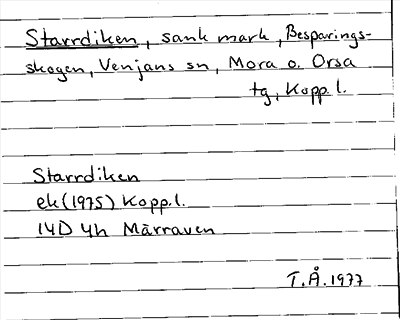 Starrdiken, sank mark, Besparings-
skogen, Venjans sn, Mora o. Orsa
tg, Kopp. l.
Starrdiken
ek (1975) Kopp.l.
14D 4h Märraven
T.Å. 1977